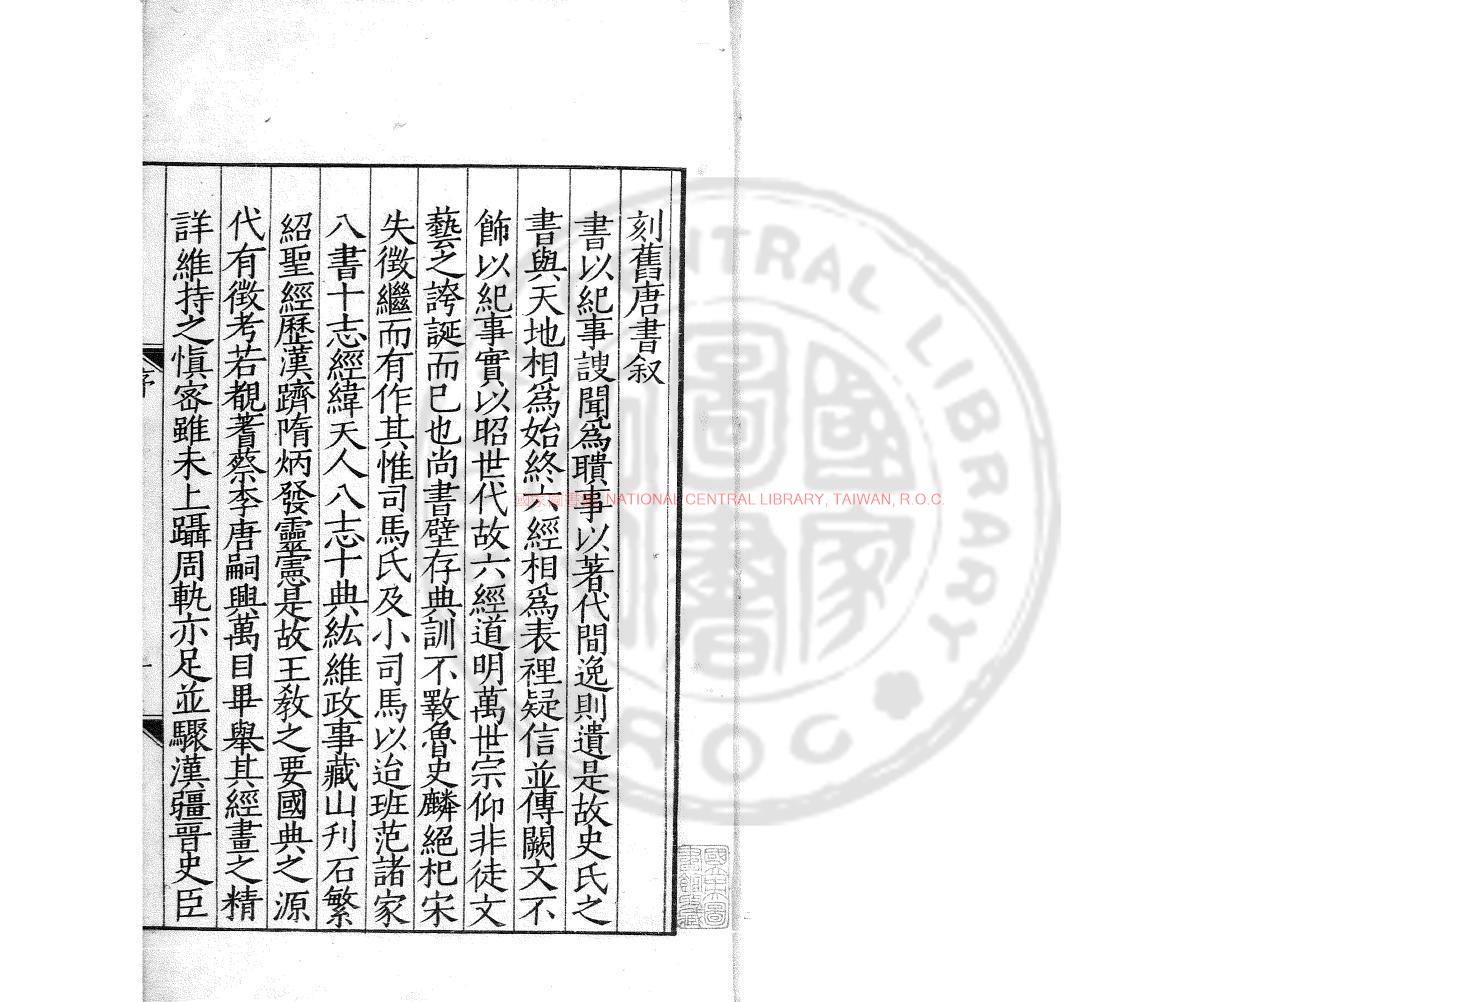 刻舊唐書叙
書以紀事諛聞爲聵事以著代間逸則遺是故史氏之
書與天地相爲始終六經相爲表裡疑信並傳闕文不
飾以紀事實以昭世代故六經道明萬世宗仰非徒文
藝之誇誕而已也尚書壁存典訓不斁魯史麟絕杞宋
失徵繼而有作其惟司馬氏及小司馬以迨班范諸家
八書十志經緯天人八志十典紘維政事藏山刋石繁
紹聖經歷漢躋隋炳發靈憲是故王敎之要國典之源
代有徵考若覩蓍蔡李唐嗣興萬目畢舉其經畫之精
詳維持之愼宻雖未上躡周軌亦足並驟漢疆晉史臣
序
一
國家圖書館 NATIONAL CENTRAL LIBRARY, TAIWAN, R.O.C.
CENTRAL LIBRARY
ROC
國家圖書